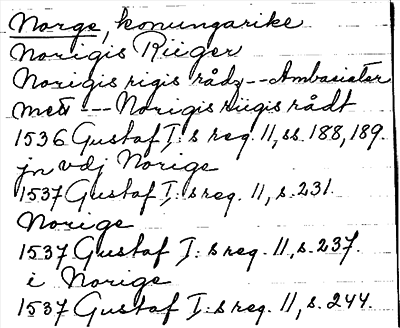 Norge, konungarike
Norigis Riiger
Norigis rigis rådz -- Ambasiater
mett --- Norigis riigis rådt
1536 Gustaf I:s reg. 11, ss. 188, 189.
jn vdj Norige
1537 Gustaf I:s reg. 11, s. 231.
Norige
1537 Gustaf I:s reg. 11, s. 237.
i Norige
1537 Gustaf I:s reg. 11, s. 244.